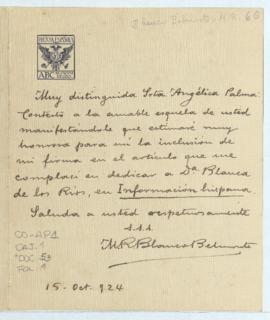 Blanco Belmonte, M.R. 66
PRENSA ESPAÑOLA
ABC
Muy distinguida Srta Angélica Palma:
Contesto a la amable esquela de usted
manifestándole que estimaré muy
honrosa para mí la inclusión de
mi firma en el artículo que me
complací en dedicar a Dª Blanca
de los Rios, en Información hispana.
Saluda a usted respetuosamente
s.s.s.
M.R. Blanco Belmonte
CO-AP1
CAJ. 1
DOC 53
FOL. 1
15-Oct. 924